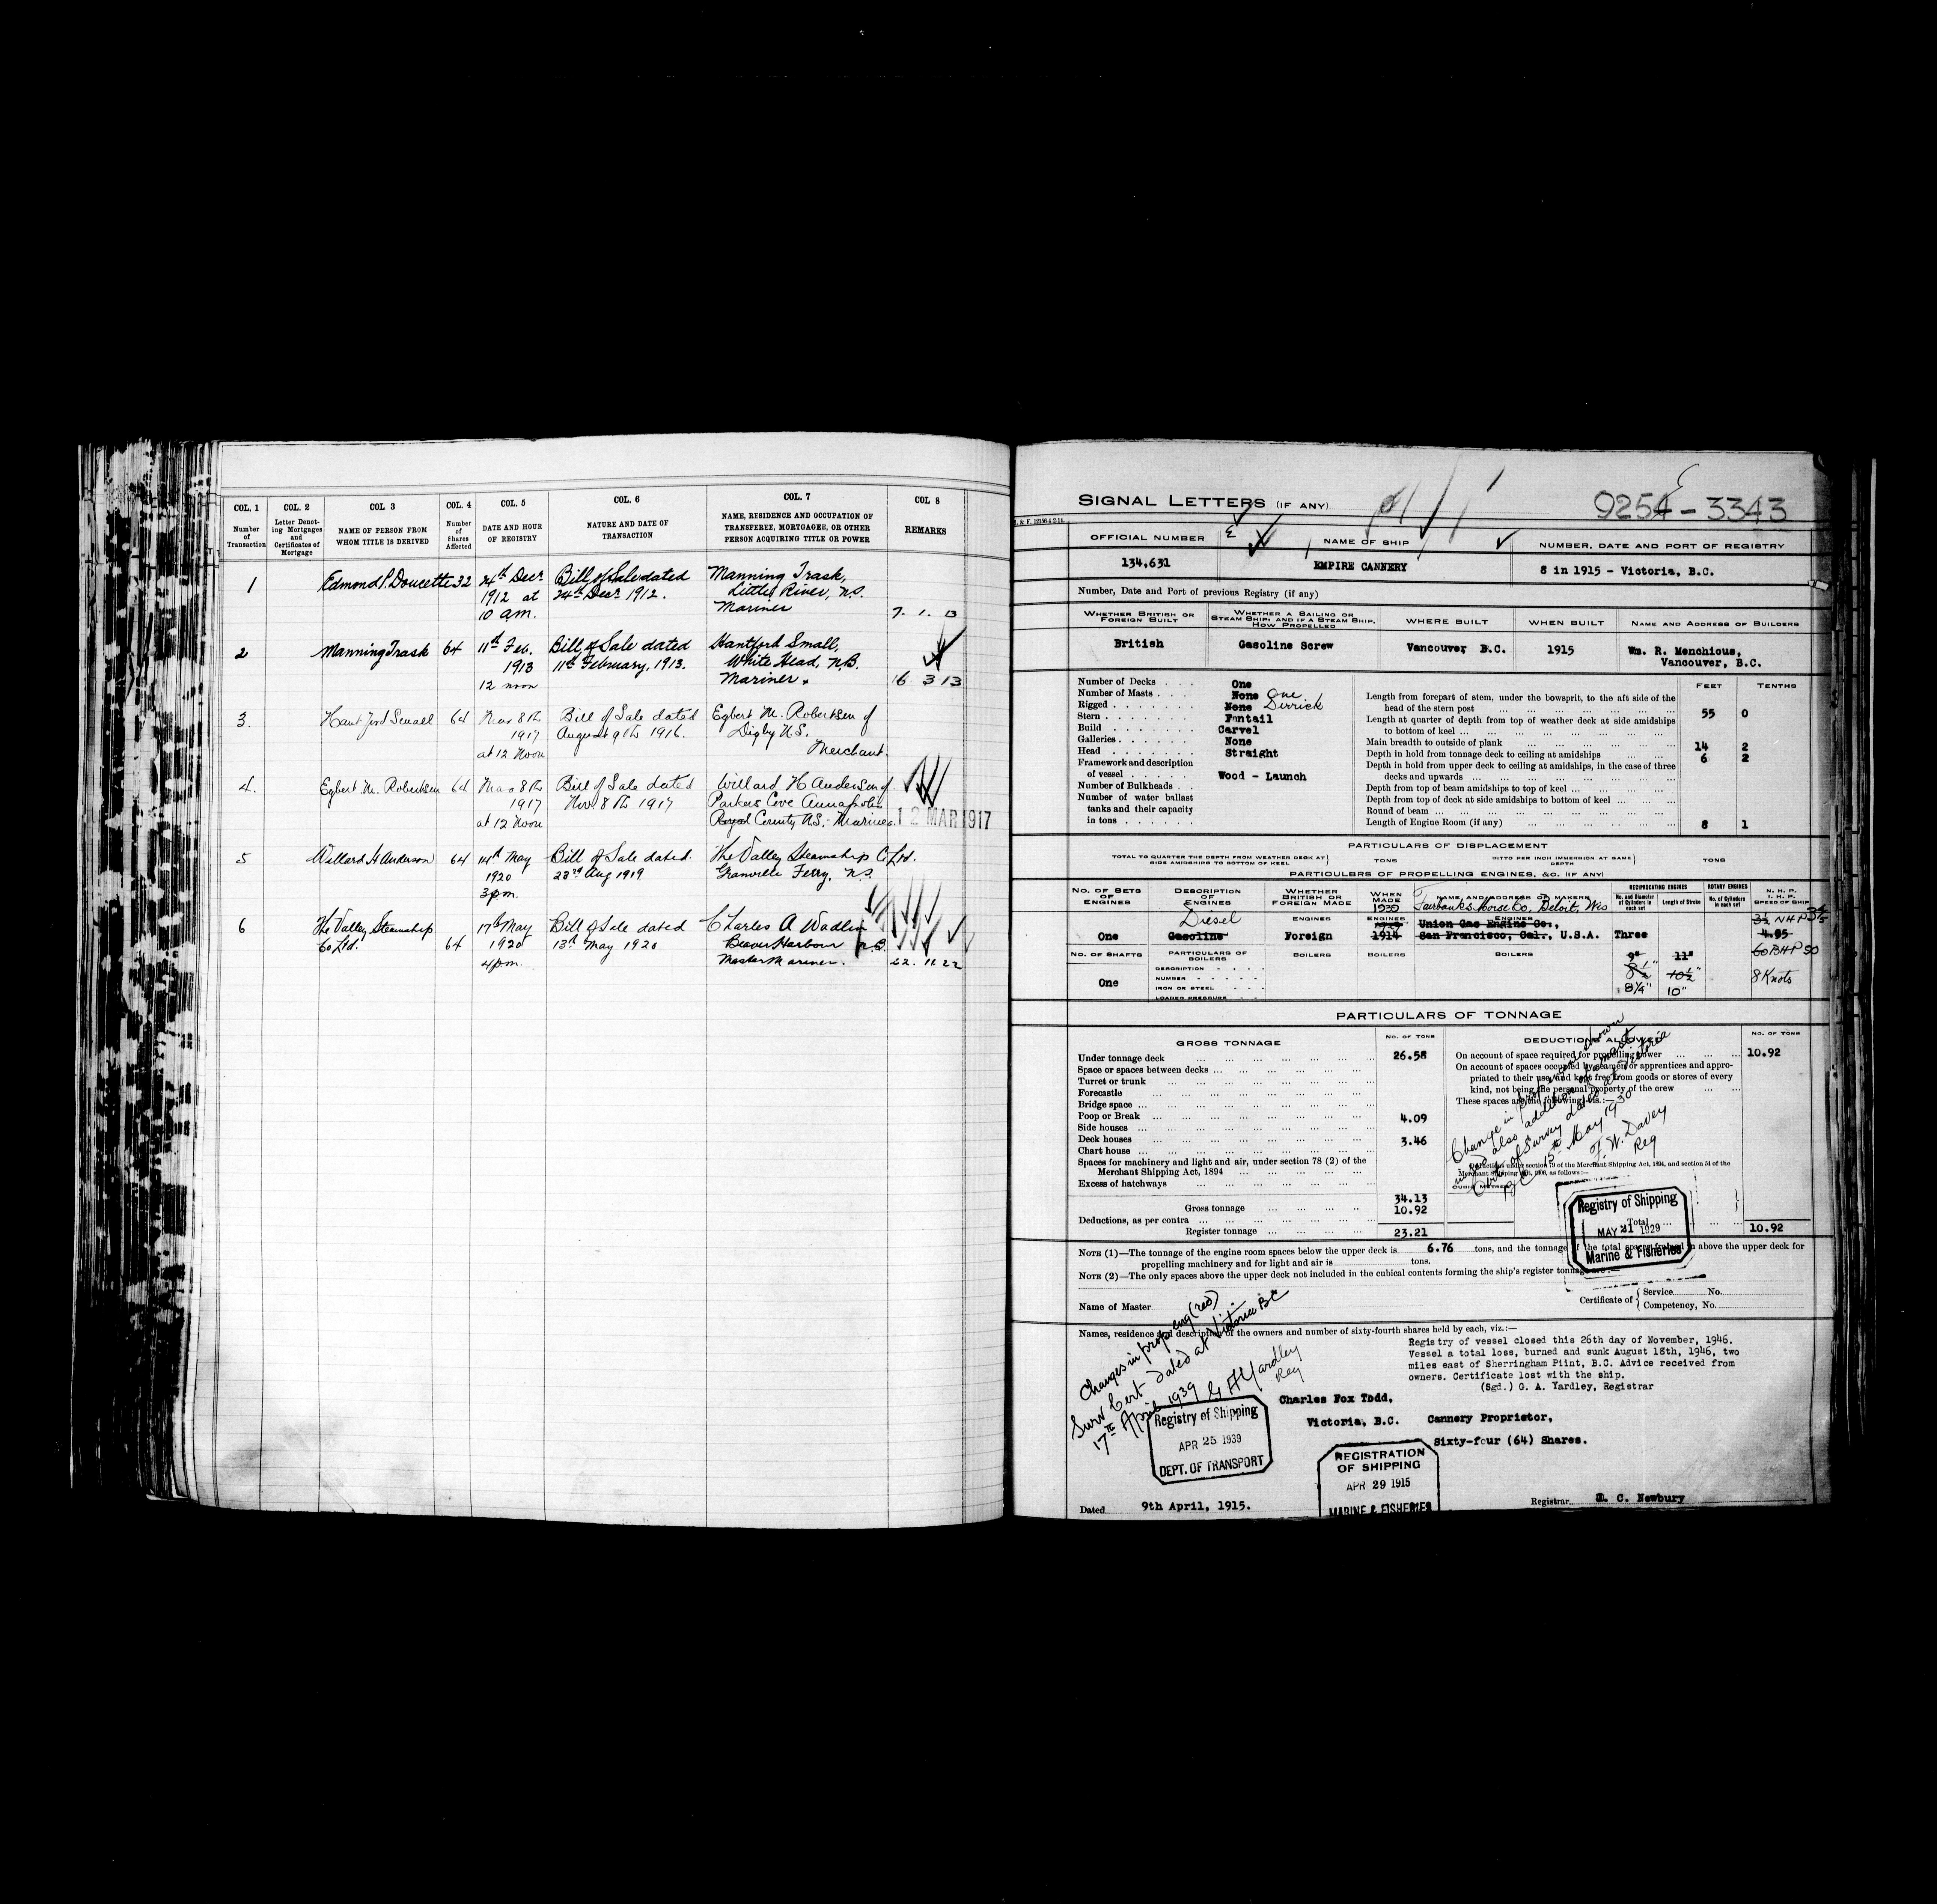 COL. 1 COL. 2 COL. 3 COL. 4 COL. 5 COL. 6 COL. 7 COL 8
Number of Transaction
Letter Denoting Mortgages and Certificates of Mortgage
NAME OF PERSON FROM WHOM TITLE IS DERIVED
Number of Shares Affected
DATE AND HOUR OF REGISTRY
NATURE AND DATE OF TRANSACTION
NAME, RESIDENCE AND OCCUPATION OF TRANSFEREE, MORTGAGEE, OR OTHER PERSON ACQUIRING TITLE OR POWER
REMARKS
1 Edmond P. Doucette 32 24th Decr. Bill of Sale dated Manning Trask,
1912 at 24th Decr. 1912. Little River, N.S.
10 am. Mariner 7. 1. 13
2 Manning Trask 64 11th Feb. Bill of Sale dated Hantford Small,
1913 11th February, 1913. White Head, N.B.
12 noon Mariner. 16 3 13
3. Hantford Small 64 Mar 8th Bill of Sale dated Egbert M. Robertson of
1917 August 9th 1916. Digby N.S.
at 12 Noon Merchant.
4. Egbert M. Robertson 64 Mar 8th Bill of Sale dated Willard H Anderson of
1917 Nov 8th 1917 Parkers Cove Annapolis
at 12 Noon Royal County N.S. - Mariner. 12 MAR 1917
5 Willard H Anderson 64 14th May Bill of Sale dated The Valley Steamship Co Ltd.
1920 23rd Aug 1919 Granville Ferry, N.S.
3 pm.
6 The Valley Steamship 17th May Bill of Sale dated Charles A Wadlin
Co Ltd. 64 1920 13th May 1920 Beaver Harbour N.B.
4 pm. Master Mariner. 22. 11 22
SIGNAL LETTERS (IF ANY) 9254 - 3343
OFFICIAL NUMBER NAME OF SHIP NUMBER, DATE AND PORT OF REGISTRY
134,631 EMPIRE CANNERY 8 in 1915 - Victoria, B.C.
Number, Date and Port of previous Registry (if any)
WHETHER BRITISH OR FOREIGN BUILT
WHETHER A SAILING OR STEAM SHIP; AND IF A STEAM SHIP, HOW PROPELLED
WHERE BUILT WHEN BUILT NAME AND ADDRESS OF BUILDERS
British Gasoline Screw Vancouver, B.C. 1915 Wm. R. Menchious,
Vancouver, B.C.
Number of Decks . . . One
Number of Masts . . . None One
Rigged . . . None Derrick
Stern . . . Fantail
Build . . . Carvel
Galleries . . . None
Head . . . Straight
Framework and description
of vessel . . . Wood - Launch
Number of Bulkheads . .
Number of water ballast
tanks and their capacity
in tons . . .
FEET TENTHS
Length from forepart of stem, under the bowsprit, to the aft side of the
head of the stern post 55 0
Length at quarter of depth from top of weather deck at side amidships
to bottom of keel
Main breadth to outside of plank 14 2
Depth in hold from tonnage deck to ceiling at amidships 6 2
Depth in hold from upper deck to ceiling at amidships, in the case of three
decks and upwards
Depth from top of beam amidships to top of keel
Depth from top of deck at side amidships to bottom of keel
Round of beam
Length of Engine Room (if any) 8 1
PARTICULARS OF DISPLACEMENT
TOTAL TO QUARTER THE DEPTH FROM WEATHER DECK AT SIDE AMIDSHIPS TO BOTTOM OF KEEL TONS DITTO PER INCH IMMERSION AT SAME DEPTH TONS
PARTICULARS OF PROPELLING ENGINES, &C. (IF ANY)
NO. OF SETS OF ENGINES
DESCRIPTION OF ENGINES
WHETHER BRITISH OR FOREIGN MADE
WHEN MADE
NAME AND ADDRESS OF MAKERS
RECIPROCATING ENGINES
No. and Diameter of Cylinders in each set
Length of Stroke
ROTARY ENGINES
No. of Cylinders in each set
N. H. P. I. H. P. SPEED OF SHIP
1939 Fairbanks Morse Co, Beloit, Wis
Diesel ENGINES ENGINES ENGINES
One Gasoline Foreign 1914 Union Gas Engine Co.,
San Francisco, Cal., U.S.A. Three 4.95
NO. OF SHAFTS PARTICULARS OF BOILERS BOILERS BOILERS BOILERS 9" 11" 60 BHP 50
8½" 10½" 8 Knots
8¼" 10"
One
DESCRIPTION
NUMBER
IRON OR STEEL
LOADED PRESSURE
PARTICULARS OF TONNAGE
GROSS TONNAGE NO. OF TONS DEDUCTIONS ALLOWED NO. OF TONS
Under tonnage deck 26.58
Space or spaces between decks
Turret or trunk
Forecastle
Bridge space
Poop or Break 4.09
Side houses
Deck houses 3.46
Chart house
Spaces for machinery and light and air, under section 78 (2) of the
Merchant Shipping Act, 1894
Excess of hatchways
34.13
Gross tonnage 10.92
Deductions, as per contra
Register tonnage 23.21
On account of space required for propelling power 10.92
On account of spaces occupied by seamen or apprentices and appro-
priated to their use, and kept free from goods or stores of every
kind, not being the personal property of the crew
These spaces are the following, viz.:—
Deductions under section 79 of the Merchant Shipping Act, 1894, and section 54 of the
Merchant Shipping Act, 1906, as follows:—
CUBIC METRES
Total 10.92
Change in prop power shown
in red also addition of a mast
Cert of Survey dated at Victoria
BC 15th May 1930
F. W. Davey
Reg
Registry of Shipping
MAY 21 1929
Marine & Fisheries
NOTE (1)—The tonnage of the engine room spaces below the upper deck is 6.76 tons, and the tonnage of the total spaces framed in above the upper deck for
propelling machinery and for light and air is tons.
NOTE (2)—The only spaces above the upper deck not included in the cubical contents forming the ship's register tonnage are:—
Name of Master
Certificate of Service No.
Competency, No.
Names, residence and description of the owners and number of sixty-fourth shares held by each, viz.:—
Registry of vessel closed this 26th day of November, 1946.
Vessel a total loss, burned and sunk August 18th, 1946, two
miles east of Sherringham Piint, B.C. Advice received from
owners. Certificate lost with the ship.
(Sgd.) G. A. Yardley, Registrar
Changes in prop eng (red)
Surv Cert dated at Victoria BC
17th April 1939 G A Yardley
Reg
Charles Fox Todd,
Victoria, B.C. Cannery Proprietor,
Sixty-four (64) Shares.
Registry of Shipping
APR 25 1939
DEPT. OF TRANSPORT
REGISTRATION
OF SHIPPING
APR 29 1915
MARINE & FISHERIES
Dated 9th April, 1915.
Registrar C. Newbury